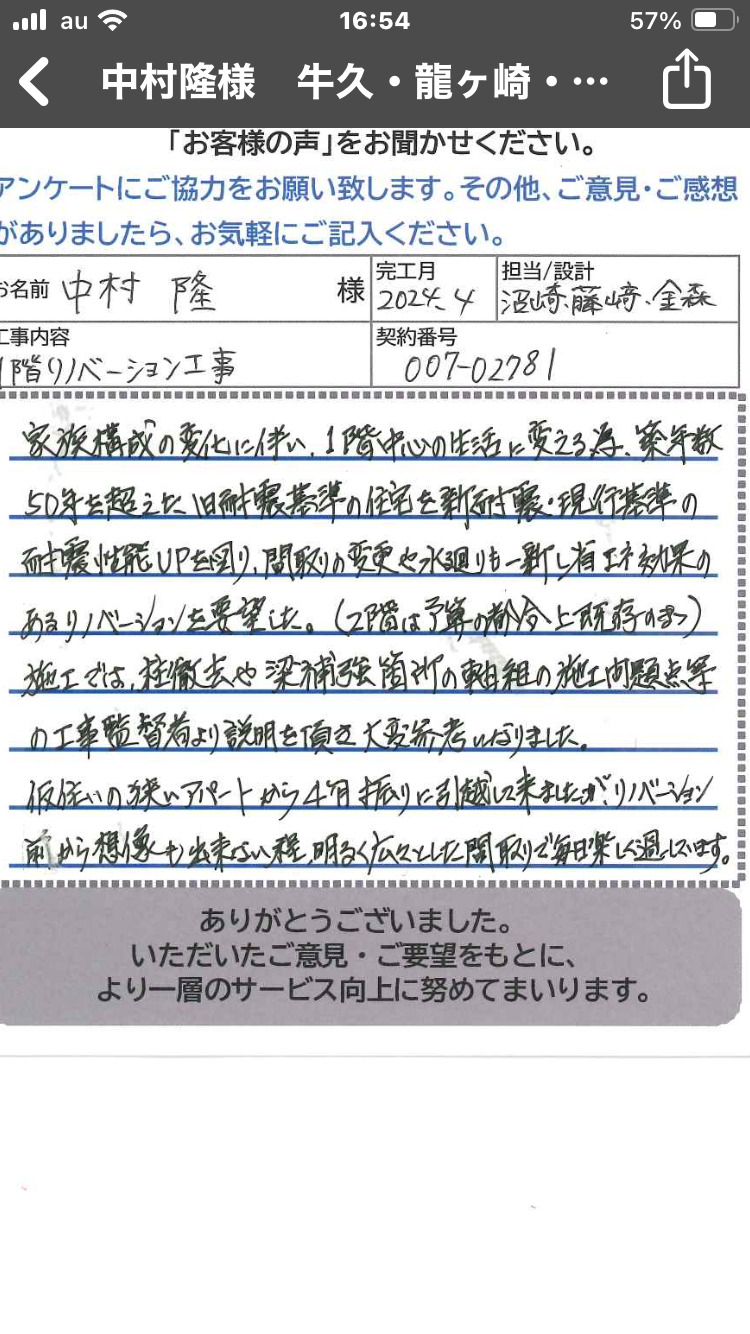 au 16:54 57%
中村隆様 牛久・龍ヶ崎・…
「お客様の声」をお聞かせください。
アンケートにご協力をお願い致します。その他、ご意見・ご感想
がありましたら、お気軽にご記入ください。
お名前 中村 隆 様
完工月
2024.4
担当/設計
沼崎、藤崎、金森
工事内容
1階リノベーション工事
契約番号
007-02781
家族構成の変化に伴い、1階中心の生活に変える為、築年数
50年を超えた旧耐震基準の住宅を新耐震・現行基準の
耐震性能UPを図り、間取りの変更や水廻りも一新し省エネ効果の
あるリノベーションを要望した。(2階は予算の都合上既存のまま)
施工では、柱撤去や梁補強箇所の軸組の施工問題点等
の工事監督者より説明を頂き大変参考になりました。
仮住いの狭いアパートから4ヶ月振りに引越して来ましたが、リノベーション
前から想像も出来ない程、明るく広々とした間取りで毎日楽しく過しています。
ありがとうございました。
いただいたご意見・ご要望をもとに、
より一層のサービス向上に努めてまいります。